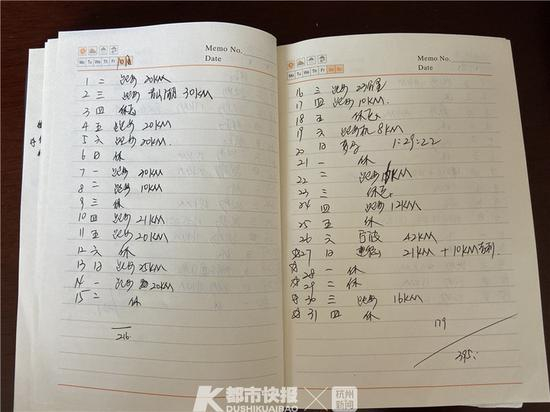 Memo No.
Date
Mo Tu We Th Fr Sa Su
10月
1 二 跑步 20KM
2 三 跑步 30KM
3 四 休息
4 五 跑步 20KM
5 六 跑步 20KM.
6 日 休
7 一 跑步 20KM
8 二 跑步 10KM
9 三 休
10 四 跑步 21KM
11 五 跑步 20KM
12 六 休
13 日 跑步 25KM
14 一 跑步 20KM
15 二 休
216.
Memo No.
Date
Mo Tu We Th Fr Sa Su
16 三 跑步
17 四 跑步 10KM.
18 五 休息
19 六 跑步机 8KM
20 日 1:29:22
21 一 休
22 二 跑步 KM
23 三 休息
24 四 跑步 12KM
25 五 休
26 六 42KM
27 日 21KM + 10KM
28 一 休
29 二 休
30 三 跑步 16KM
31 四 休
179
395.
都市快报
DUSHIKUAIBAO
×
杭州新闻